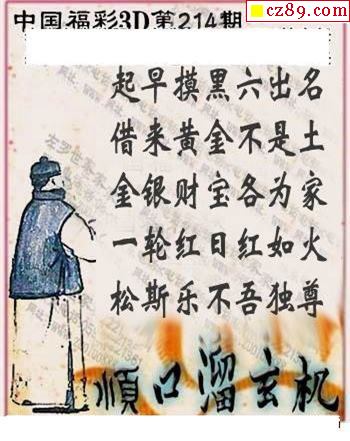 cz89.com
中国福彩3D第214期
起早摸黑六出名
借来黄金不是土
金银财宝各为家
一轮红日红如火
松斯乐不吾独尊
順口溜玄机